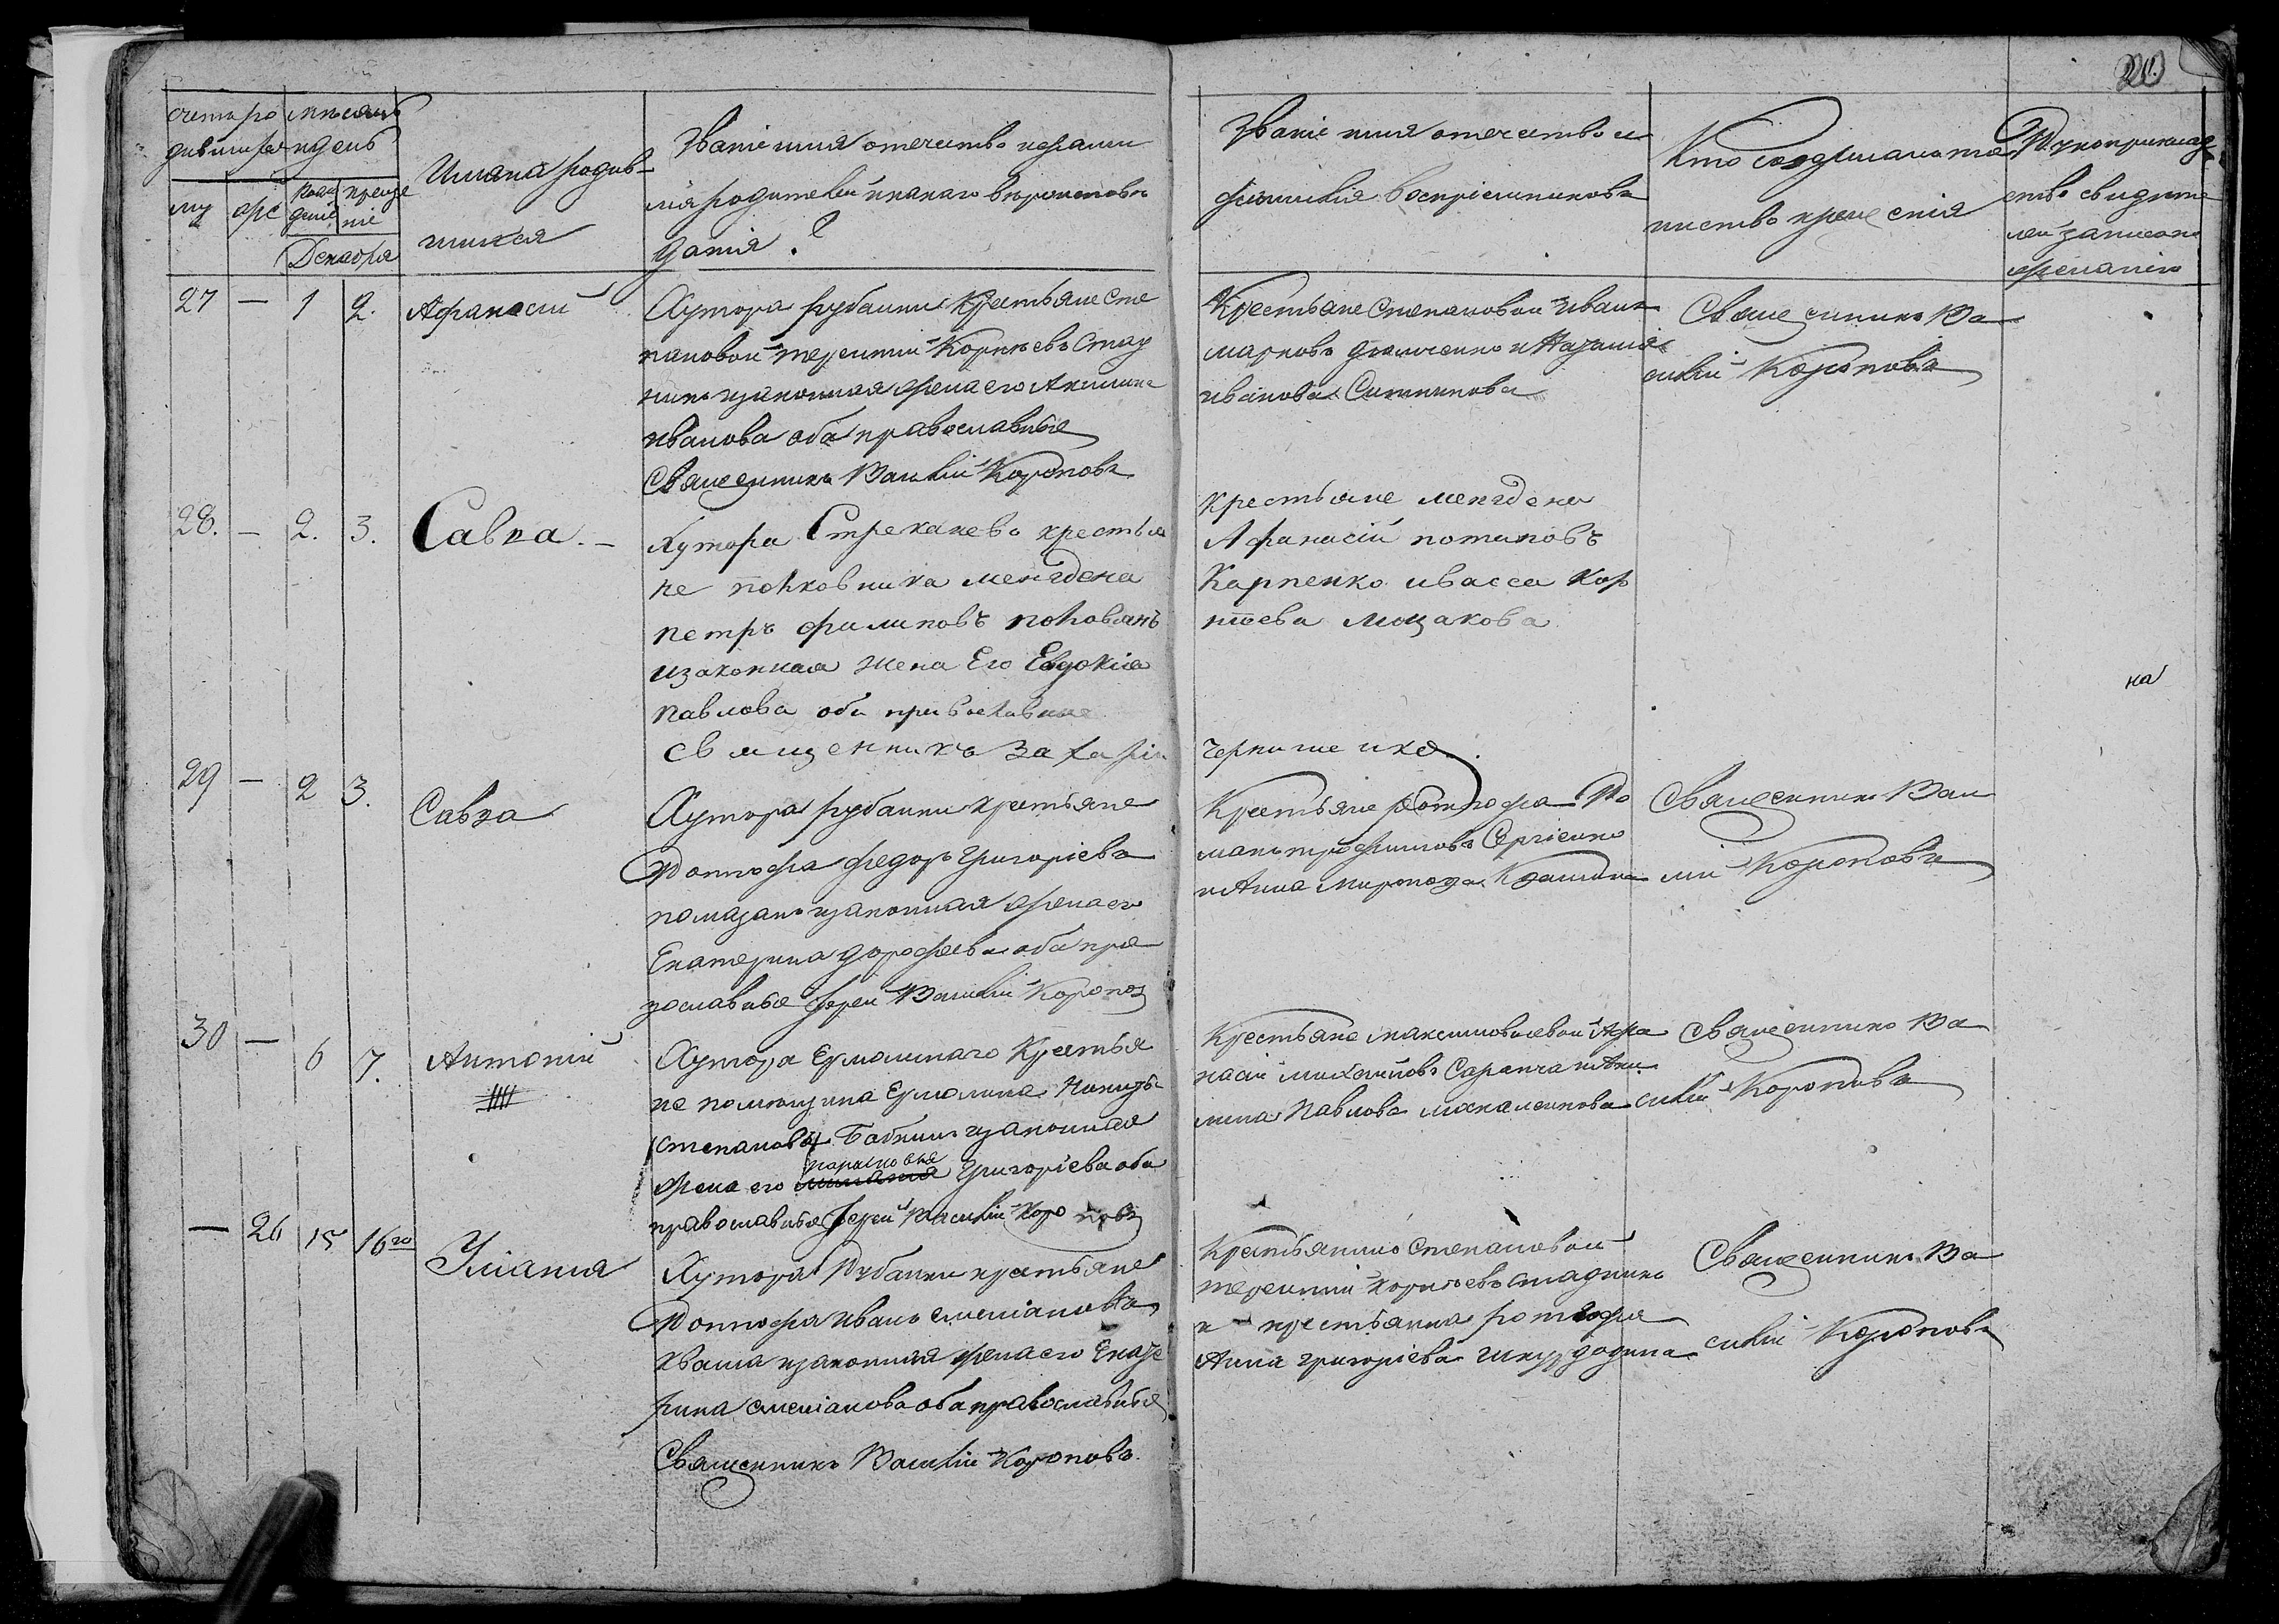 20
счетъ ро мѣсяцъ
дившихся и день
му женс рож крещ
деніе ніе
Декабря
Имяна родив
шихся
Званіе имя отечество и фами
лія родителей и какаго вѣроисповѣ
данія.
Званіе имя отечество и
фамилія воспріемниковъ
Кто совершалъ та
инство крещенія
Рукоприклад
ство свидѣте
лей записи
желанію
27 — 1 2. Афанасій
Хутора рубашки Крестьяне Сте
пановой терентій Корнѣевъ Стад
никъ и законная жена его Акилина
Иванова оба православные
Священникъ Василій Короповъ
Крестьяне Степановой Иванъ
марковъ демченко и Наталія
иванова Ситникова
Священникъ Ва
силій Короповъ
28. — 2. 3. Савва. —
Хутора Стрекачева крестья
не полковника менгдена
петръ филиповъ половянъ
и законная жена Его Евдокія
павлова оби православные
священникъ Захарій
крестьяне менгдена
Афанасій потаповъ
Карпенко и васса кор
нѣева мощакова
чернишенко
на
29 — 2 3. Савва
Хутора рубашки крестьяне
Роттофа федоръ григоріевъ
помазанъ и законная жена его
Екатерина дорофеева оба пра
вославные Іерей Василій Короповъ
Крестьяне роттофа Ро
манъ трофимовъ Сергіенко
и Анна миронова
Священникъ Васи
лій Короповъ
30 — 6 7. Антоній
Хутора Ермолинаго Крестья
не помѣщика Ермолина
степановъ Бабкинъ и законная
жена его парасковія григоріева оба
православные Іерей Василій Короповъ
Крестьяне максимовичевой Афа
насій михайловъ Саранча и Аки
лина Павлова михаленкова
Священникъ Ва
силій Короповъ
— 26 15 16го Уліанія
Хутора Рубашки крестьяне
Роттофа иванъ емеліановъ
Кваша и законная жена его Екате
рина емеліанова оба православные
Священникъ Василій Короповъ.
Крестьянинъ Степановой
терентій корнѣевъ стадникъ
и крестьянка роттофа
Анна григоріева шкурдодина
Священникъ Ва
силій Короповъ